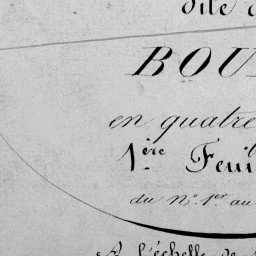 dite
BOU
en quatre
1.ère Feui
du N.º 1.er au
A l'échelle de